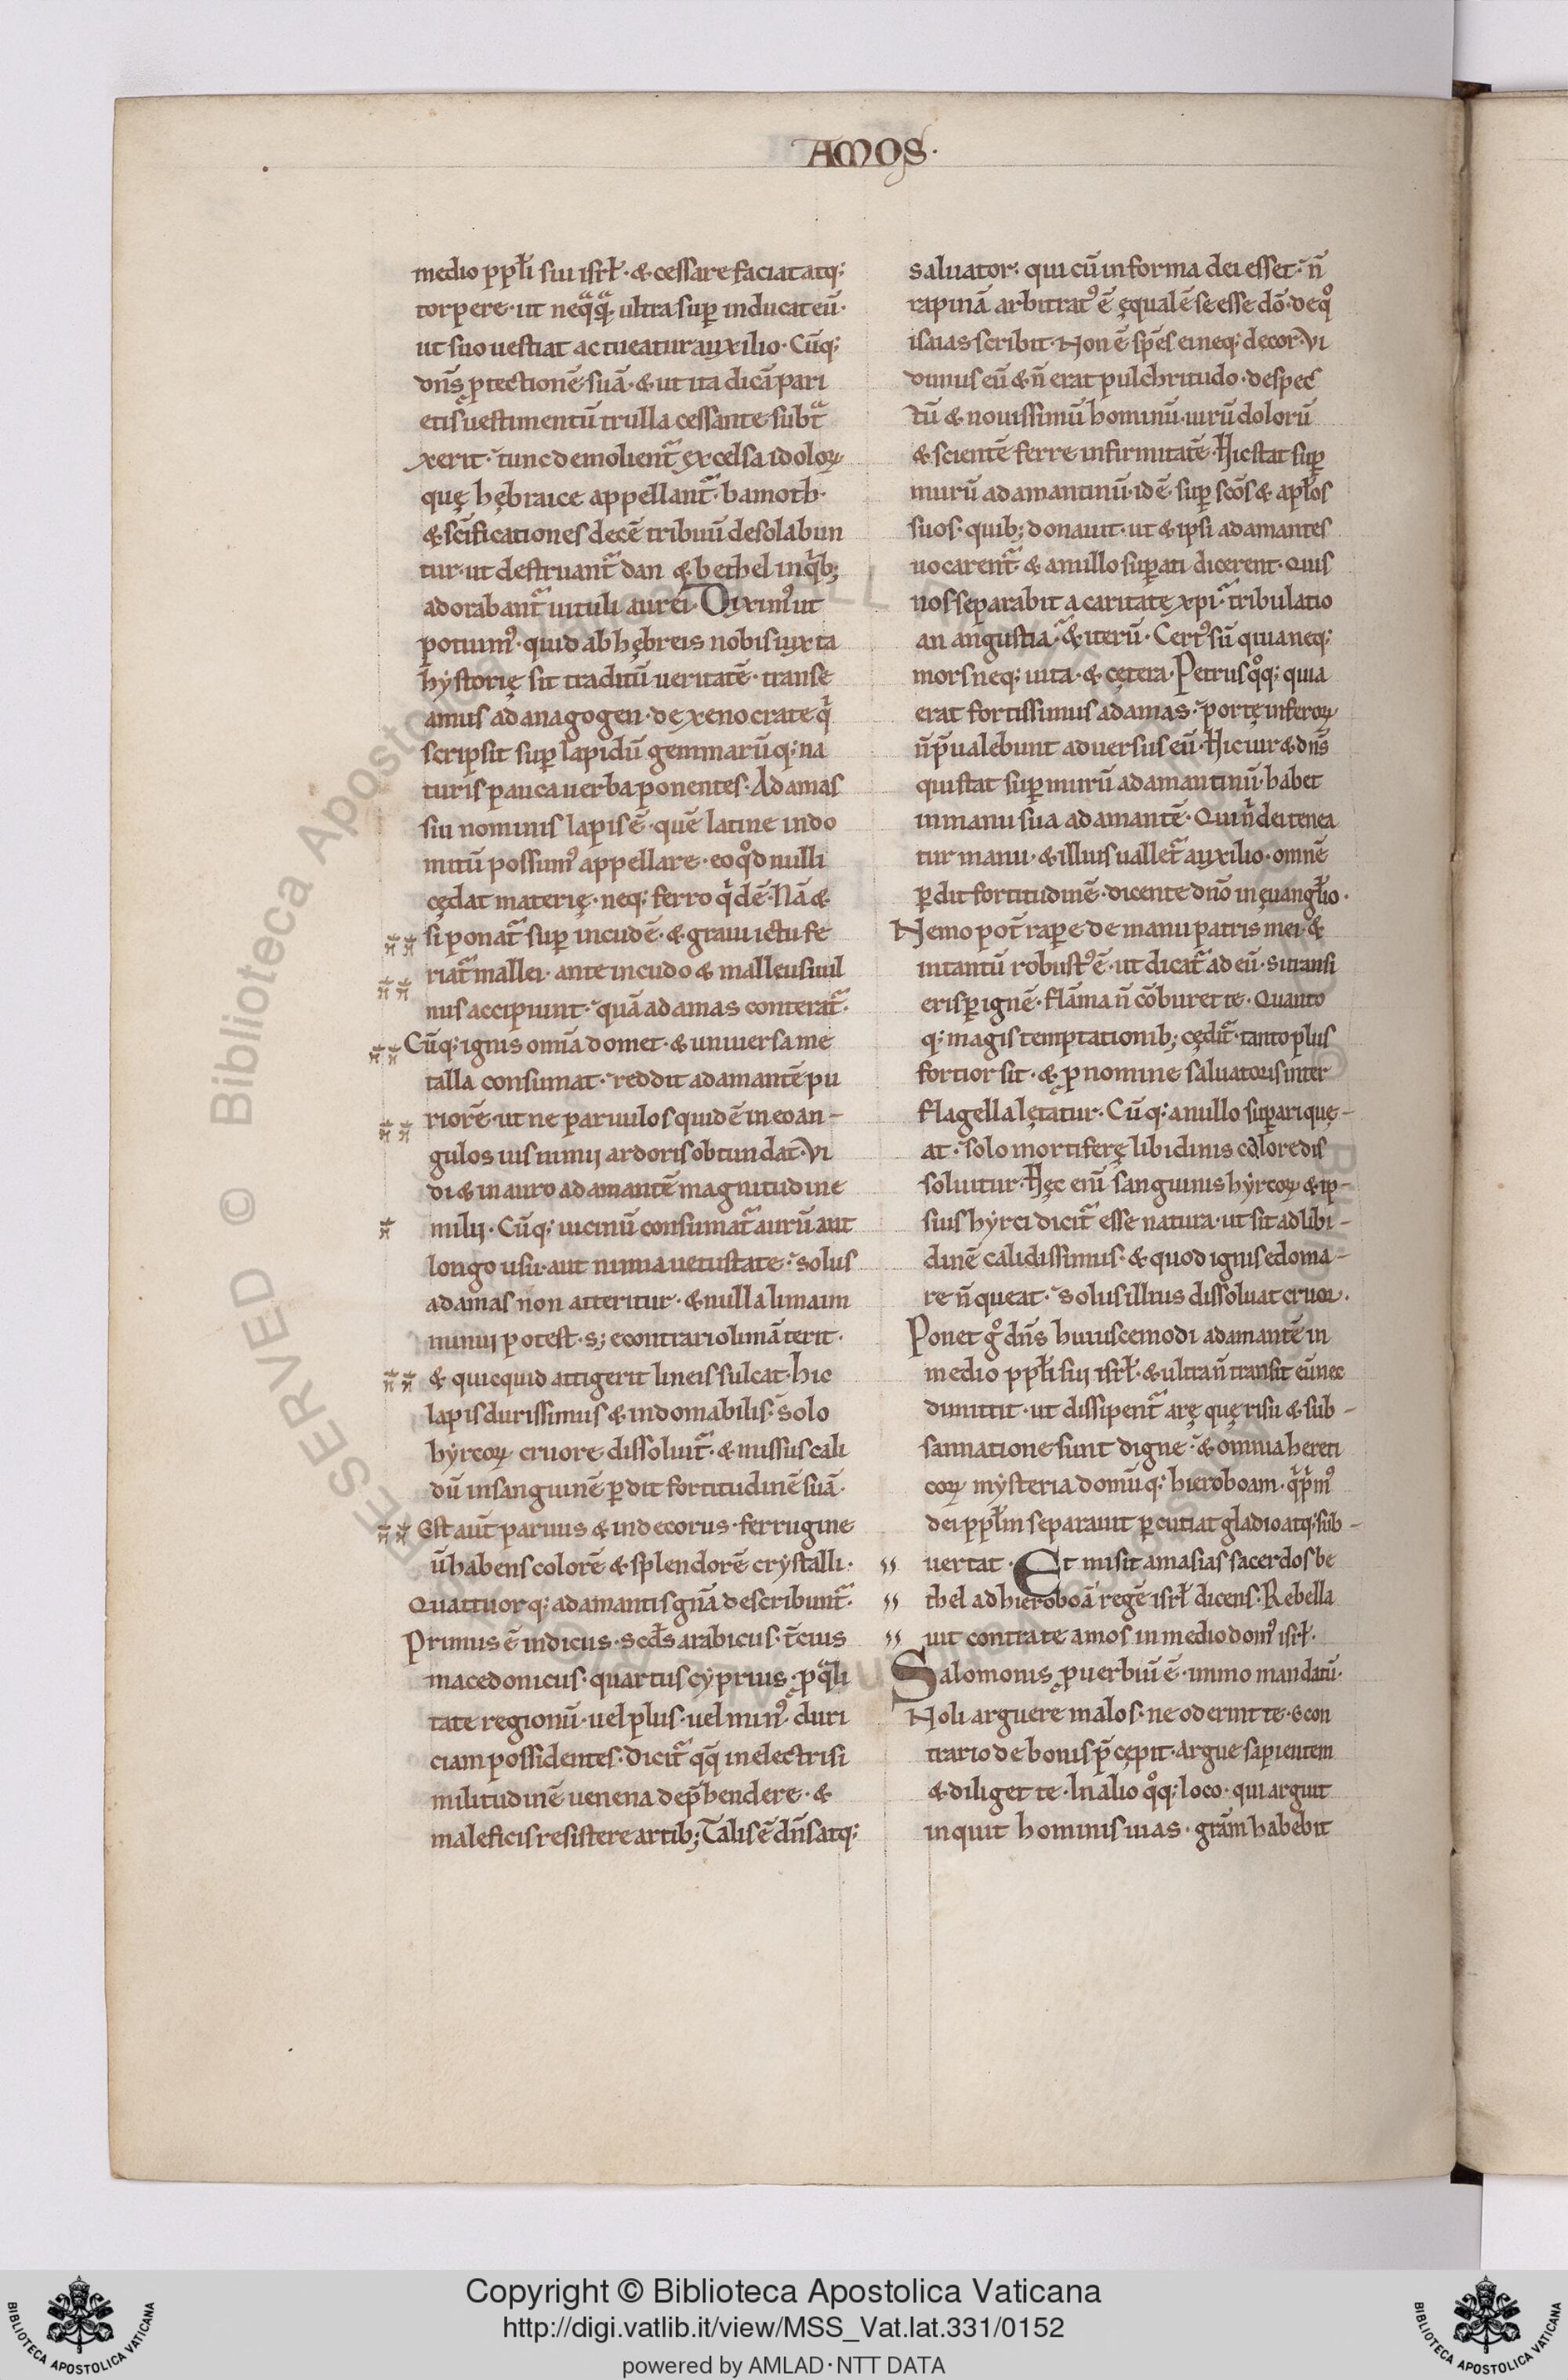 AMOS·
medio ppɫi sui isrɫ·& cessare faciat atq;
torpere·ut neq̃q̃ ultra sup̱ inducat eũ·
ut suo uestiat ac tueatur auxilio·Cũq;
dñs ꝓtectionẽ suã·& ut ita dicã pari
etis uestimentũ trulla cessante subtᷓ
xerit·tunc demolientᷓ excelsa idoloꝝ
quę hębraice appellantᷓ·bamoth·
& sc̃ificationes decẽ tribuũ desolabun
tur·ut destruantᷓ dan & bethel in qͥb;
adorabantᷓ uituli aurei·Dixim᷒ ut
potuim᷒·quid ab hębreis nobis iuxta
hẏstorię sit traditũ ueritatẽ·transe
amus ad anagogen·de xenocrate qͥ
scripsit sup̱ lapidũ gemmarũq; na
turis pauca uerba ponentes·Adamas
sui nominis lapis ẽ·quẽ latine indo
mitũ possum᷒ appellare·eo qͦd nulli
cędat materię·neq; ferro qͥdẽ·Nã &
si ponatᷓ sup̱ incudẽ·& graui ictu fe
riatᷓ mallei·ante incudo & malleus uul
nus accipiunt·quã adamas conteratᷓ·
Cũq; ignis om̃ia domet·& uniuersa me
talla consumat·reddit adamantẽ pu
riorẽ·ut ne paruulos quidẽ in eo an-
gulos uis nimij ardoris obtundat·Vi
di & in auro adamantẽ magnitudine
milij·Cũq; uicinũ consumatᷓ aurũ aut
longo usu·aut nimia uetustate·solus
adamas non atteritur·& nulla lima im
minui potest·s; econtrario limã terit·
& quicquid attigerit lineis sulcat·hic
lapis durissimus & indomabilis·solo
hẏrcoꝝ cruore dissoluitᷓ·& missus cali
dũ in sanguinẽ ꝑdit fortitudinẽ suã·
Est aut̃ paruus & indecorus·ferrugine
ũ habens colorẽ & splendorẽ crẏstalli·
Quattuorq; adamantis gñã describuntᷓ·
Primus ẽ indicus·scd̃s arabicus·t̃cius
macedonicus·quartus cẏprius·ꝓ qᷓli
tate regionũ·uel plus·uel min᷒·duri
ciam possidentes·dicitᷓ qq̃ in electri si
militudinẽ uenena dep̃hendere·&
maleficis resistere artib;·Talis ẽ dñs atq;
saluator·qui cũ in forma dei esset·ñ
rapinã arbitrat᷒ ẽ ęqualẽ se esse dõ·de qͦ
isaias scribit·Non ẽ sp̃es ei neq; decor·Vi
dimus eũ & ñ erat pulchritudo·despec
tũ & nouissimũ hominũ·uirũ dolorũ
& scientẽ ferre infirmitatẽ·Hic stat sup̱
murũ adamantinũ·id ẽ·sup̱ sc̃os & apɫos
suos·quib; donauit·ut & ipsi adamantes
uocarentᷓ·& a nullo suꝑati dicerent·Quis
nos separabit a caritate xp̃i·tribulatio
an angustia·& iterũ·Cert᷒ sũ quia neq;
mors neq; uita·& cętera·Petrus qͦq; quia
erat fortissimus adamas·portę inferoꝝ
ñ p̃ualebunt aduersus eũ·Hic uir & dñs
qui stat suꝑ murũ adamantinũ·habet
in manu sua adamantẽ·Qui nͥ dei tenea
tur manu·& illius ualletᷓ auxilio·omnẽ
ꝑdit fortitudinẽ·dicente dño in ęuangɫio·
Nemo pot̃ raꝑe de manu patris mei·&
in tantũ robust᷒ ẽ·ut dicatᷓ ad eũ·Si transi
eris ꝑ ignẽ·flãma ñ cõburet te·Quanto
q; magis temptationib; cęditᷓ·tanto plus
fortior sit·& ꝓ nomine saluatoris inter
flagella lętatur·Cũq; a nullo suꝑari que-
at·solo mortiferę libidinis calore dis
soluitur·Hęc enĩ sanguinis hẏrcoꝝ & ip-
sius hẏrci dicitᷓ esse natura·ut sit ad libi-
dinẽ calidissimus·& quod ignis edoma-
re ñ queat·solus illius dissoluat cruor·
Ponet gͦ dñs huiuscemodi adamantẽ in
medio ppɫi sui isrɫ·& ultra ñ transit eũ nec
dimittit·ut dissipentᷓ arę quę risu & sub-
sannatione sunt digne·& omnia hereti
coꝝ mẏsteria domũq; hieroboam·qͥ pͥm᷒
dei ppɫm separauit ꝑcutiat gladio atq; sub-
uertat·Et misit amasias sacerdos be
thel ad hieroboã regẽ isrɫ dicens·Rebella
uit contra te amos in medio dom᷒ isrɫ·
Salomonis ꝓuerbiũ ẽ·immo mandatũ·
Noli arguere malos·ne oderint te·Econ
trario de bonis p̃cępit·Argue sapientem
& diliget te·In alio qͦq; loco·qui arguit
inquit hominis uias·grãm habebit
Copyright © Biblioteca Apostolica Vaticana
http://digi.vatlib.it/view/MSS_Vat.lat.331/0152
powered by AMLAD·NTT DATA
BIBLIOTECA APOSTOLICA VATICANA
BIBLIOTECA APOSTOLICA VATICANA